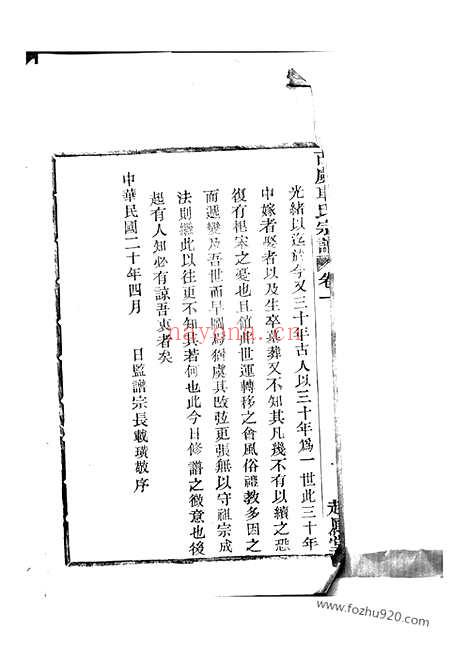 宗譜 卷一
光緒以迄於今又三十年古人以三十年爲一世此三十年
中嫁者娶者以及生卒墓葬又不知其凡幾不有以續之恐
復有杞宋之憂也且值世運轉移之會風俗禮教多因之
而遞變及吾世而早圖爲猶虞其改弦更張無以守祖宗成
法則繼此以往更不知其若何也此今日修譜之微意也後
起有人知必有諒吾衷者矣
中華民國二十年四月 日監譜宗長載璜敬序
nayona.cn
www.fozhu920.com